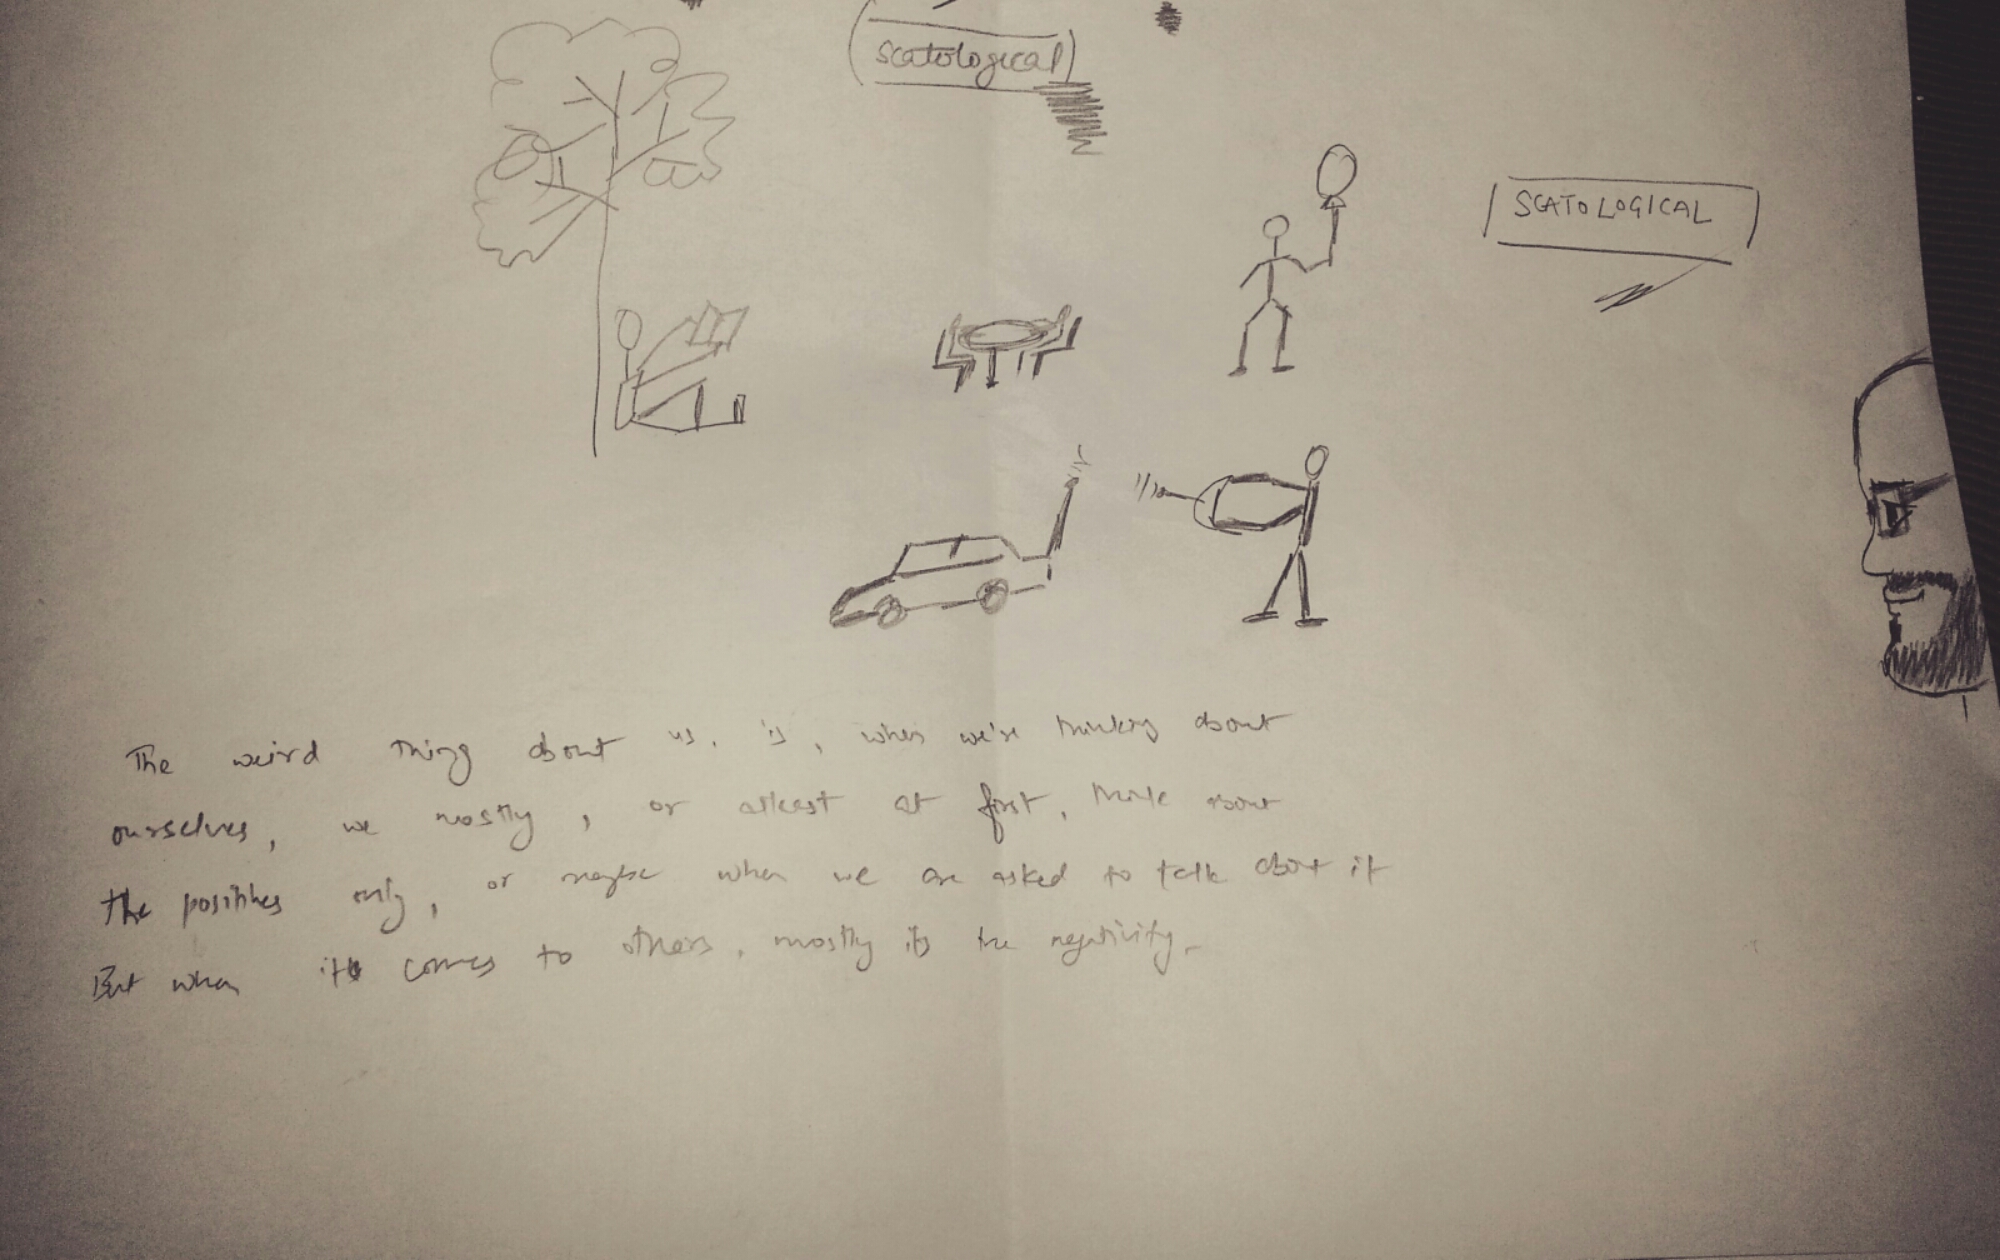 (scatological)
SCATOLOGICAL
The weird thing about us, is, when we're thinking about
ourselves, we mostly, or atleast at first, think about
the positives only, or maybe when we are asked to talk about it
But when it comes to others, mostly its the negativity.